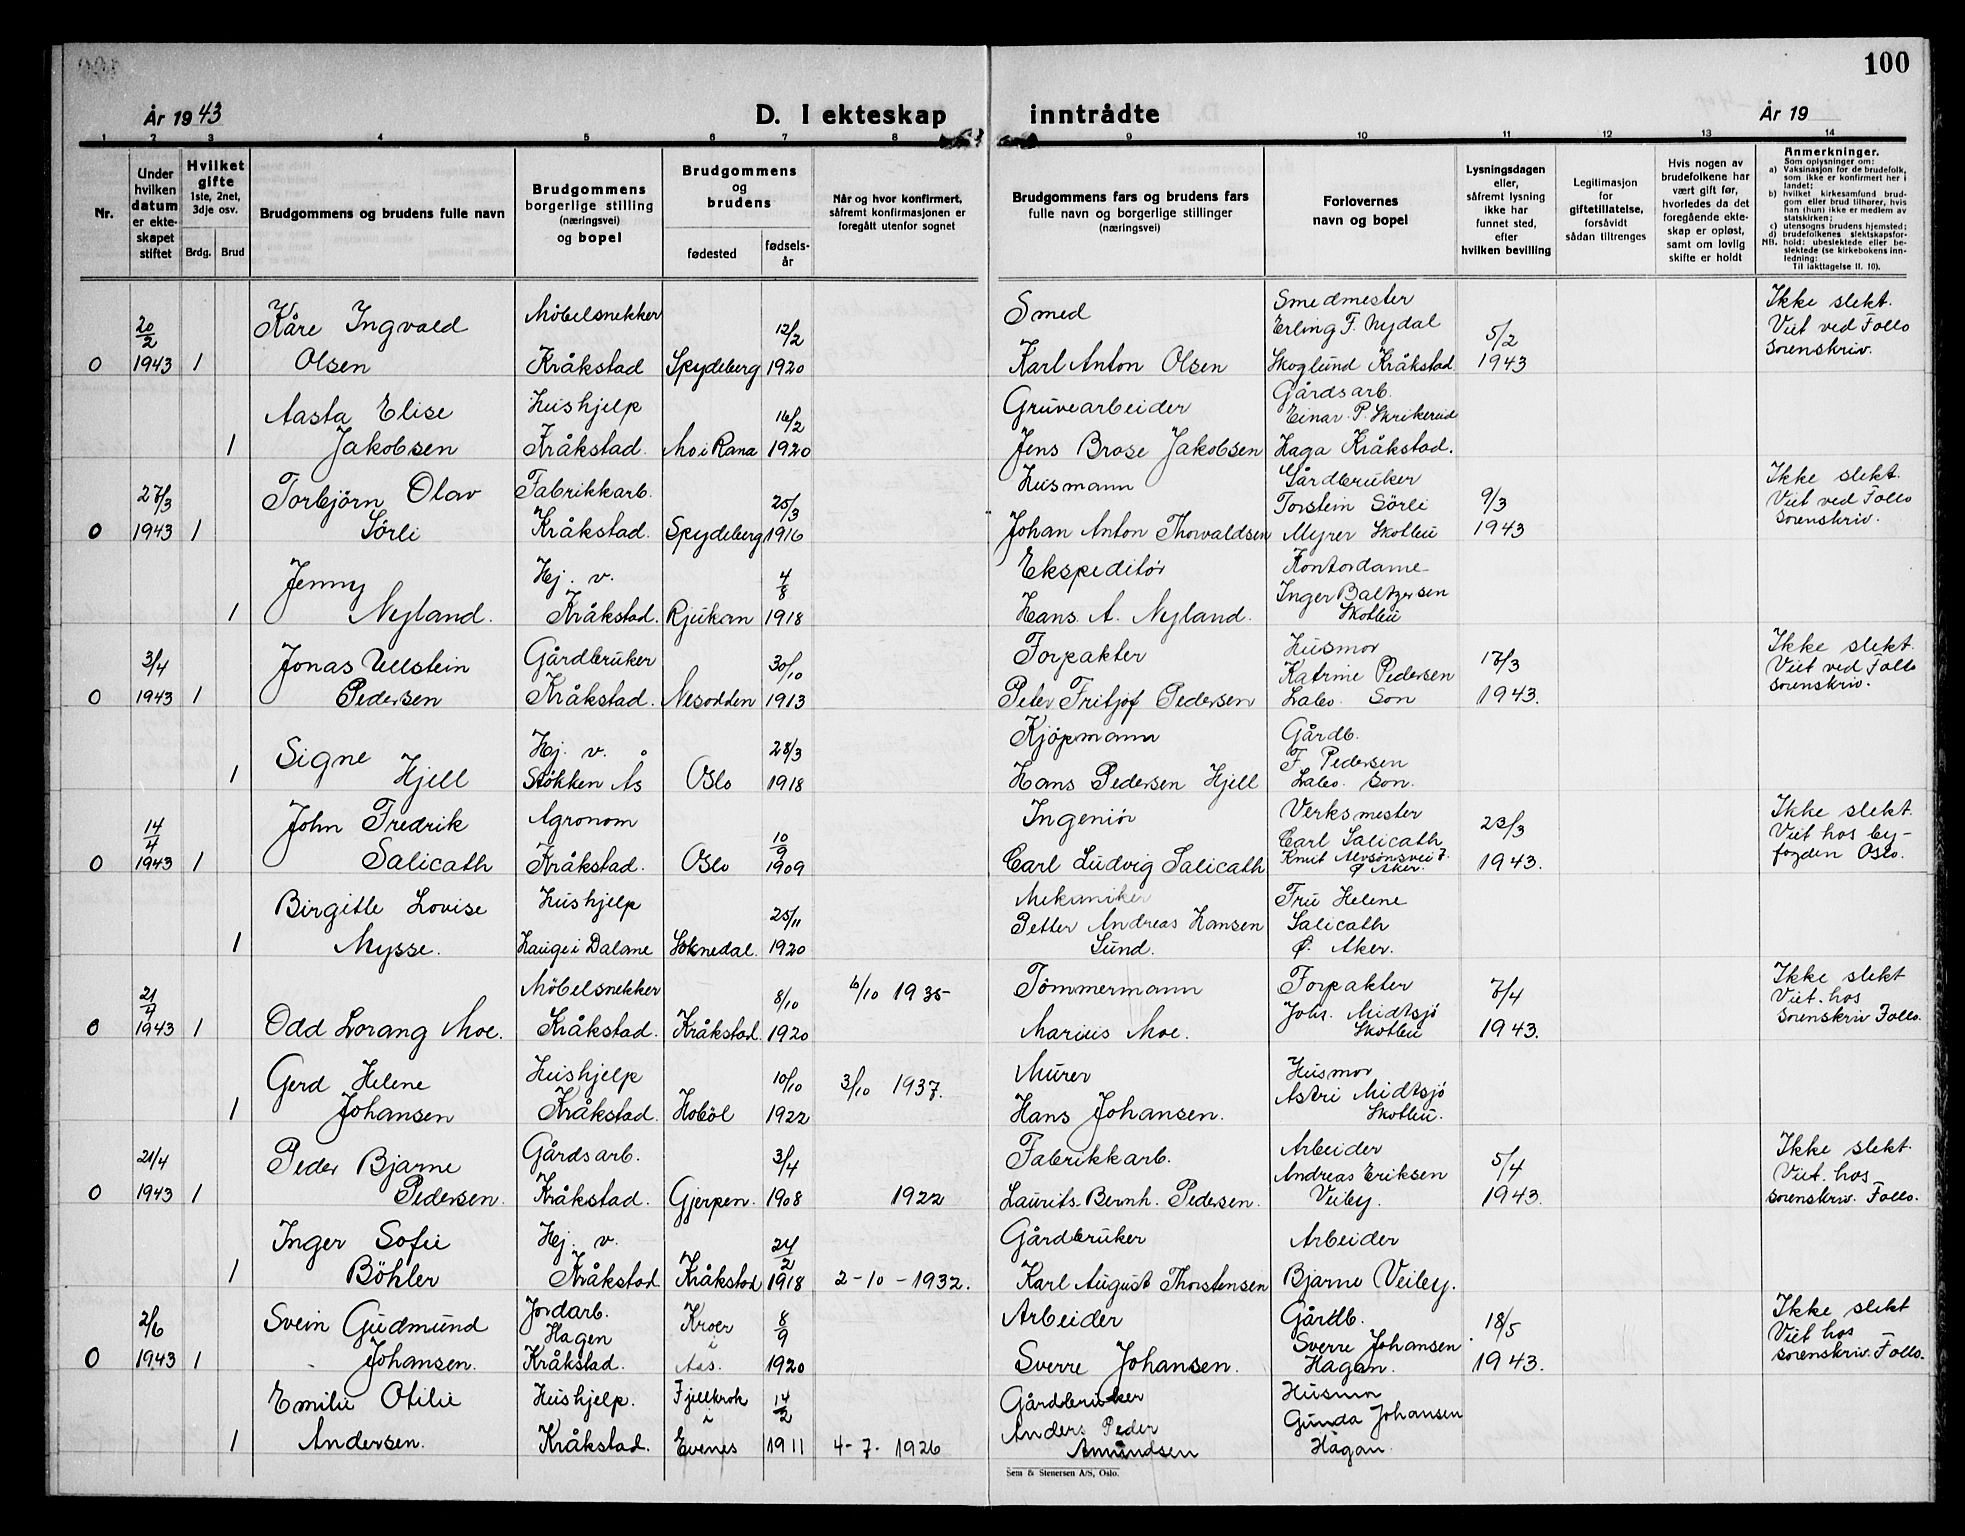 100
År 1943
D. I ekteskap inntrådte
År 19
1 2 3 4 5 6 7 8 9 10 11 12 13 14
Nr.
Under hvilken datum er ekteskapet stiftet
Hvilket gifte 1ste, 2net, 3dje osv.
Brdg. Brud
Brudgommens og brudens fulle navn
Brudgommens borgerlige stilling (næringsvei) og bopel
Brudgommens og brudens
fødested
fødselsår
Når og hvor konfirmert, såfremt konfirmasjonen er foregått utenfor sognet
Brudgommens fars og brudens fars fulle navn og borgerlige stillinger (næringsvei)
Forlovernes navn og bopel
Lysningsdagen eller, såfremt lysning ikke har funnet sted, efter hvilken bevilling
Legitimasjon for giftetillatelse, forsåvidt sådan tiltrenges
Hvis nogen av brudefolkene har vært gift før, hvorledes da det foregående ekteskap er opløst, samt om lovlig skifte er holdt
Anmerkninger.
Som oplysninger om:
a) Vaksinasjon for de brudefolk, som ikke er konfirmert her i landet;
b) hvilket kirkesamfund brudgom eller brud tilhører, hvis han (hun) ikke er medlem av statskirken;
c) utensogns brudens hjemsted;
d) brudefolkenes slektskapsforhold: ubeslektede eller beslektede (se kirkebokens innledning:
NB. Til iakttagelse II. 10).
0 20/2 1943 1 Kåre Ingvald Olsen Möbelsnekker Kråkstad Spydeberg 12/2 1920 Smed Karl Anton Olsen Smedmester Erling F. Nydal Skoglund Kråkstad 5/2 1943 Ikke slekt. Viet ved Follo Sorenskriv.
1 Aasta Elise Jakobsen Hushjelp Kråkstad. Mo i Rana 16/2 1920 Gruvearbeider Jens Brose Jakobsen Gårdsarb. Einar P. Skrikerud Haga Kråkstad.
0 27/3 1943 1 Torbjörn Olav Sörli Fabrikkarb. Kråkstad. Spydeberg 25/3 1916 Husmann Johan Anton Thorvaldsen Gårdbruker Torstein Sörli Myrer Skotbu 9/3 1943 Ikke slekt. Viet ved Follo Sorenskriv.
1 Jenny Nyland. Hj. v. Kråkstad. Rjukan 4/8 1918 Ekspeditör Hans A. Nyland. Kontordame Inger Baltzersen Skotbu
0 3/4 1943 1 Jonas Ullstein Pedersen Gårdbruker Kråkstad. Nesodden 30/10 1913 Forpakter Peter Fritjof Pedersen Husmor Katrine Pedersen Labo. Son 17/3 1943. Ikke slekt. Viet ved Follo Sorenskriv.
1 Signe Hjell Hj. v. Stökken Ås Oslo 28/3 1918 Kjöpmann Hans Pedersen Hjell Gårdb. F. Pedersen Labo. Son.
0 14/4 1943 1 John Fredrik Salicath Agronom Kråkstad. Oslo 10/9 1909 Ingeniör Carl Ludvig Salicath Verksmester Carl Salicath Knut Alvsönsvei 7. Ø Aker. 23/3 1943. Ikke slekt. Viet hos byfogden Oslo.
1 Birgitte Lovise Mysse. Hushjelp Hauge i Dalane Soknedal. 25/11 1920 Mekaniker Petter Andreas Hansen Sund. Fru Helene Salicath Ø. Aker.
0 21/4 1943 1 Odd Lorang Moe. Möbelsnekker Kråkstad. Kråkstad. 8/10 1920 6/10 1935 Tömmermann Marius Moe. Forpakter Johs. Midtsjö Skotbu 7/4 1943. Ikke slekt Viet hos Sorenskriv Follo.
1 Gerd Helene Johansen Hushjelp Kråkstad. Hoböl 10/10 1922 3/10 1937. Murer Hans Johansen. Husmor Astri Midtsjö Skotbu.
0 21/4 1943 1 Peder Bjarne Pedersen. Gårdsarb. Kråkstad. Gjerpen. 3/4 1908 1922 Fabrikkarb. Laurits Bernh. Pedersen. Arbeider Andreas Eriksen Veiby. 5/4 1943. Ikke slekt. Viet. hos Sorenskriv. Follo.
1 Inger Sofie Böhler Hj. v. Kråkstad Kråkstad 24/2 1918 2-10-1932. Gårdbruker Karl August Thorstensen Arbeider Bjarne Veiby.
0 2/6 1943 1 Svein Gudmund Johansen. Jordarb. Hagen Kråkstad. Kroer i Aas. 8/9 1920 Arbeider Sverre Johansen. Gårdb. Sverre Johansen Hagan. 18/5 1943. Ikke slekt Viet hos Sorenskriv. Follo.
1 Emilie Otilie Andersen. Hushjelp. Kråkstad. Fjellkrok i Evenes 14/2 1911 4-7-1926 Gårdbruker Anders Peder Amundsen Husmor Gunda Johansen Hagan.
Sem & Stenersen A/S, Oslo.